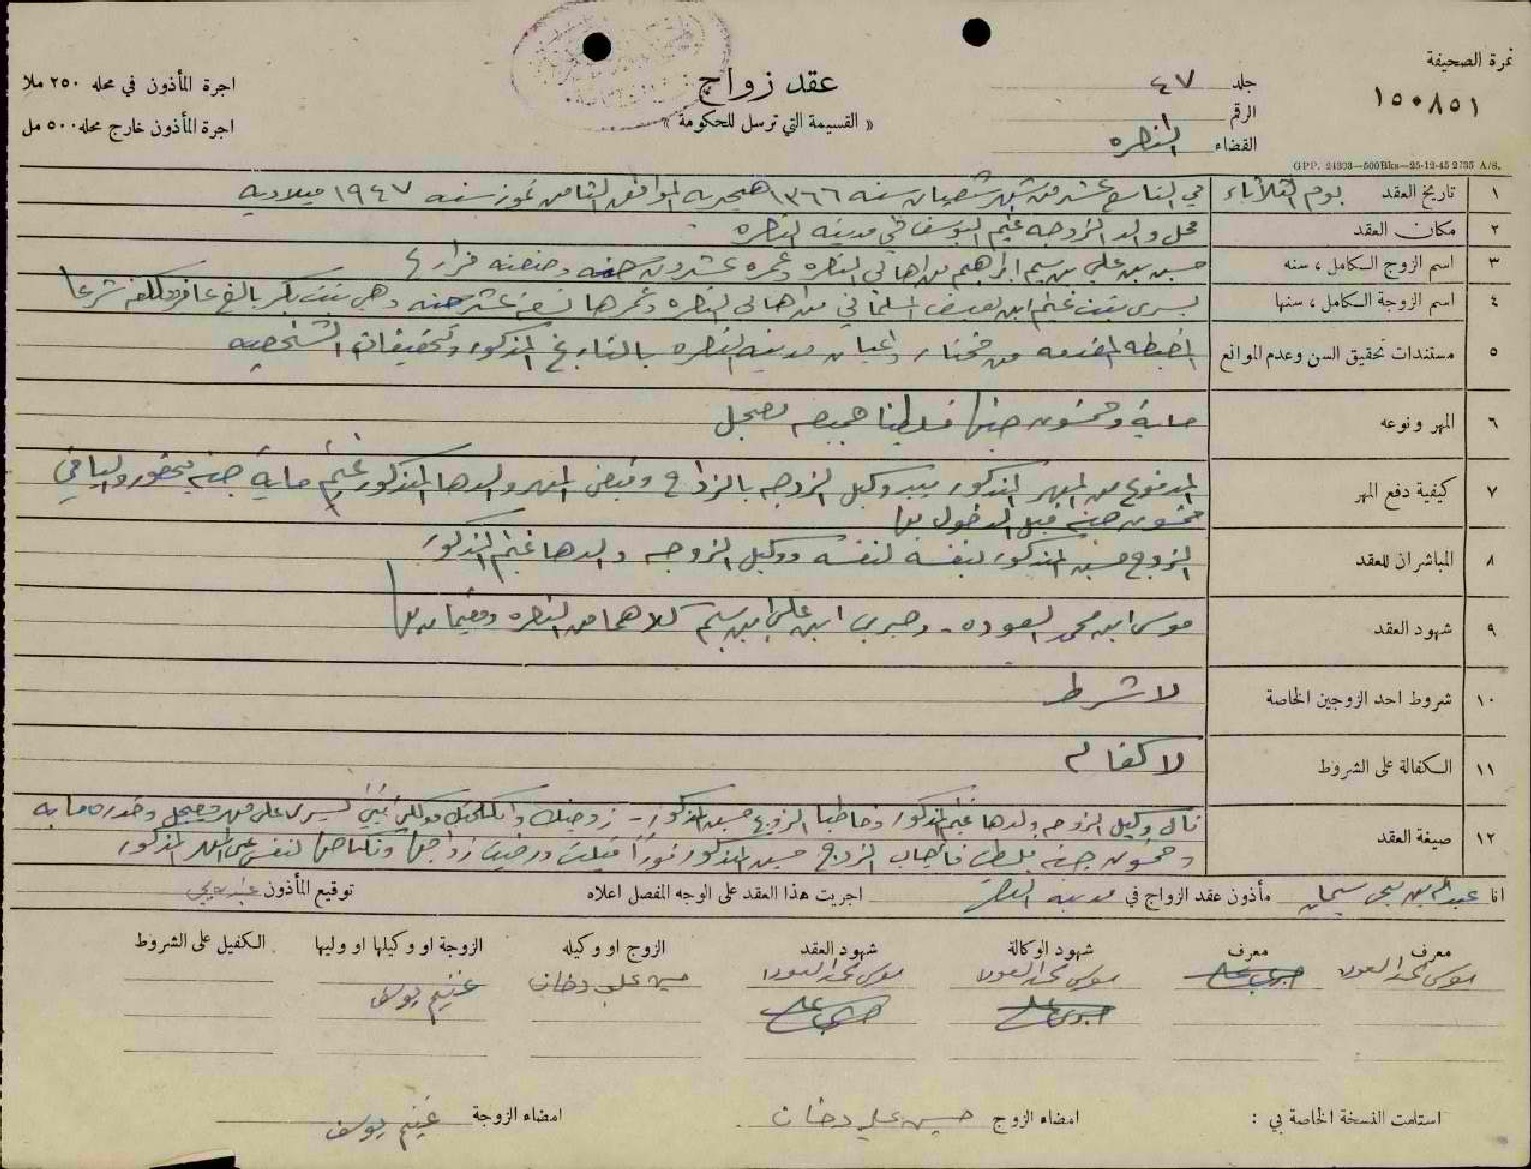 نمرة الصحيفة
١٥٠٨٥١
جلد ٤٧
الرقم ١
القضاء الناصره
عقد زواج
« القسيمة التي ترسل للحكومة »
اجرة المأذون في محله ٢٥٠ ملا
اجرة المأذون خارج محله ٥٠٠ مل
GPP. 24303—500Bks—25-12-45 2735 A/S.
١ تاريخ العقد يوم الثلاثاء في التاسع عشر من شهر شعبان سنه ١٣٦٦ هجريه الموافق الثامن تموز سنه ١٩٤٧ ميلاديه
٢ مكان العقد محل والد الزوجه غنيم اليوسف في مدينه الناصره
٣ اسم الزوج الكامل ، سنه حسين بن علي بن سليم ابراهيم من اهالي الناصره وعمره عشرون سنه
٤ اسم الزوجة الكامل ، سنها يسرى بنت غنيم ابن يوسف من اهالي الناصره وعمرها تسعة عشر سنه وهي بنت بكر بالغ شرعا
٥ مستندات تحقيق السن وعدم الموانع المضبطه المقدمه من مختار واعيان مدينه الناصره بالتاريخ المذكور وتحقيقاتي الشخصيه
٦ المهر ونوعه ماية وخمسون جنيها فلسطينا جميعه معجل
٧ كيفية دفع المهر المدفوع من المهر المذكور بيد وكيل الزوجه بالزواج وقبض المهر والدها المذكور غنيم ماية جنيه بحضور والباقي
خمسون جنيه قبل الدخول بها
٨ المباشران للعقد الزوج حسين المذكور بنفسه لنفسه ووكيل الزوجه والدها غنيم المذكور
٩ شهود العقد موسى ابن محمد السعوده - وصبري ابن علي بن سليم كلاهما من الناصره ومقيمان بها
١٠ شروط احد الزوجين الخاصة لا شرط
١١ الكفالة على الشروط لا كفاله
١٢ صيغة العقد قال وكيل الزوجه والدها غنيم المذكور مخاطبا الزوج حسين المذكور - زوجتك وانكحتك موكلتي بنتي يسرى على مهر معجل وقدره مايه
وخمسون جنيه فلسطيني فاجاب الزوج حسين المذكور فوراً قبلت ورضيت زواجها ونكاحها لنفسي على المهر المذكور
انا مأذون عقد الزواج في مدينه الناصره اجريت هذا العقد على الوجه المفصل اعلاه توقيع المأذون
معرف معرف شهود الوكالة شهود العقد الزوج او وكيله الزوجة او وكيلها او وليها الكفيل على الشروط
غنيم يوسف
استلمت النسخة الخاصة بي : امضاء الزوج حسين علي امضاء الزوجة غنيم يوسف